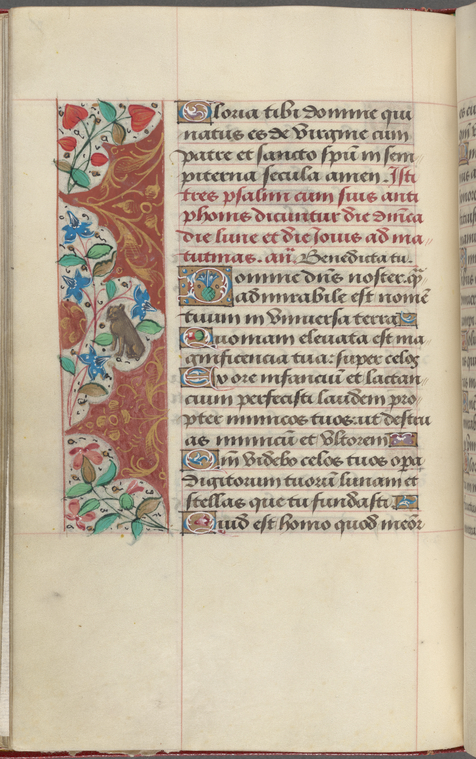 Gloria tibi domine qui
natus es de virgine cum
patre et sancto spũ in sem
piterna secula amen. Isti
tres psalmi cum suis anti
phonis dicuntur die dñica
die lune et die Jovis ad ma
tutinas. añ. Benedicta tu.
Domine dñs noster. q̃
admirabile est nomẽ
tuum in universa terra
Quoniam elevata est ma
gnificencia tua: super celos
Ex ore infanciũ et lactan
cium perfecisti laudem pro
pter inimicos tuos. ut destru
as inimicũ et ultorem
Qm̃ videbo celos tuos opa
digitorum tuorũ lunam et
stellas que tu fundasti
Quid est homo quod meõr